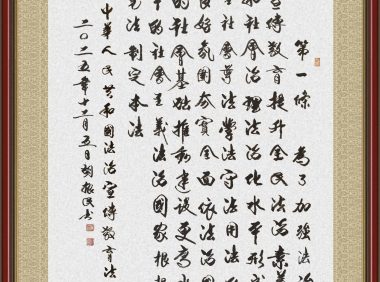 第一條 為了加強法治
宣傳教育提升全民法治素養
社會治理法治化水平形成
社會尊法學法守法用法
良好氛圍夯實全面依法治國
的社會基礎推動建設更高水
的社會主義法治國家根據
法制定本法
中華人民共和國法治宣傳教育法
二〇二五年十二月五日胡振民書